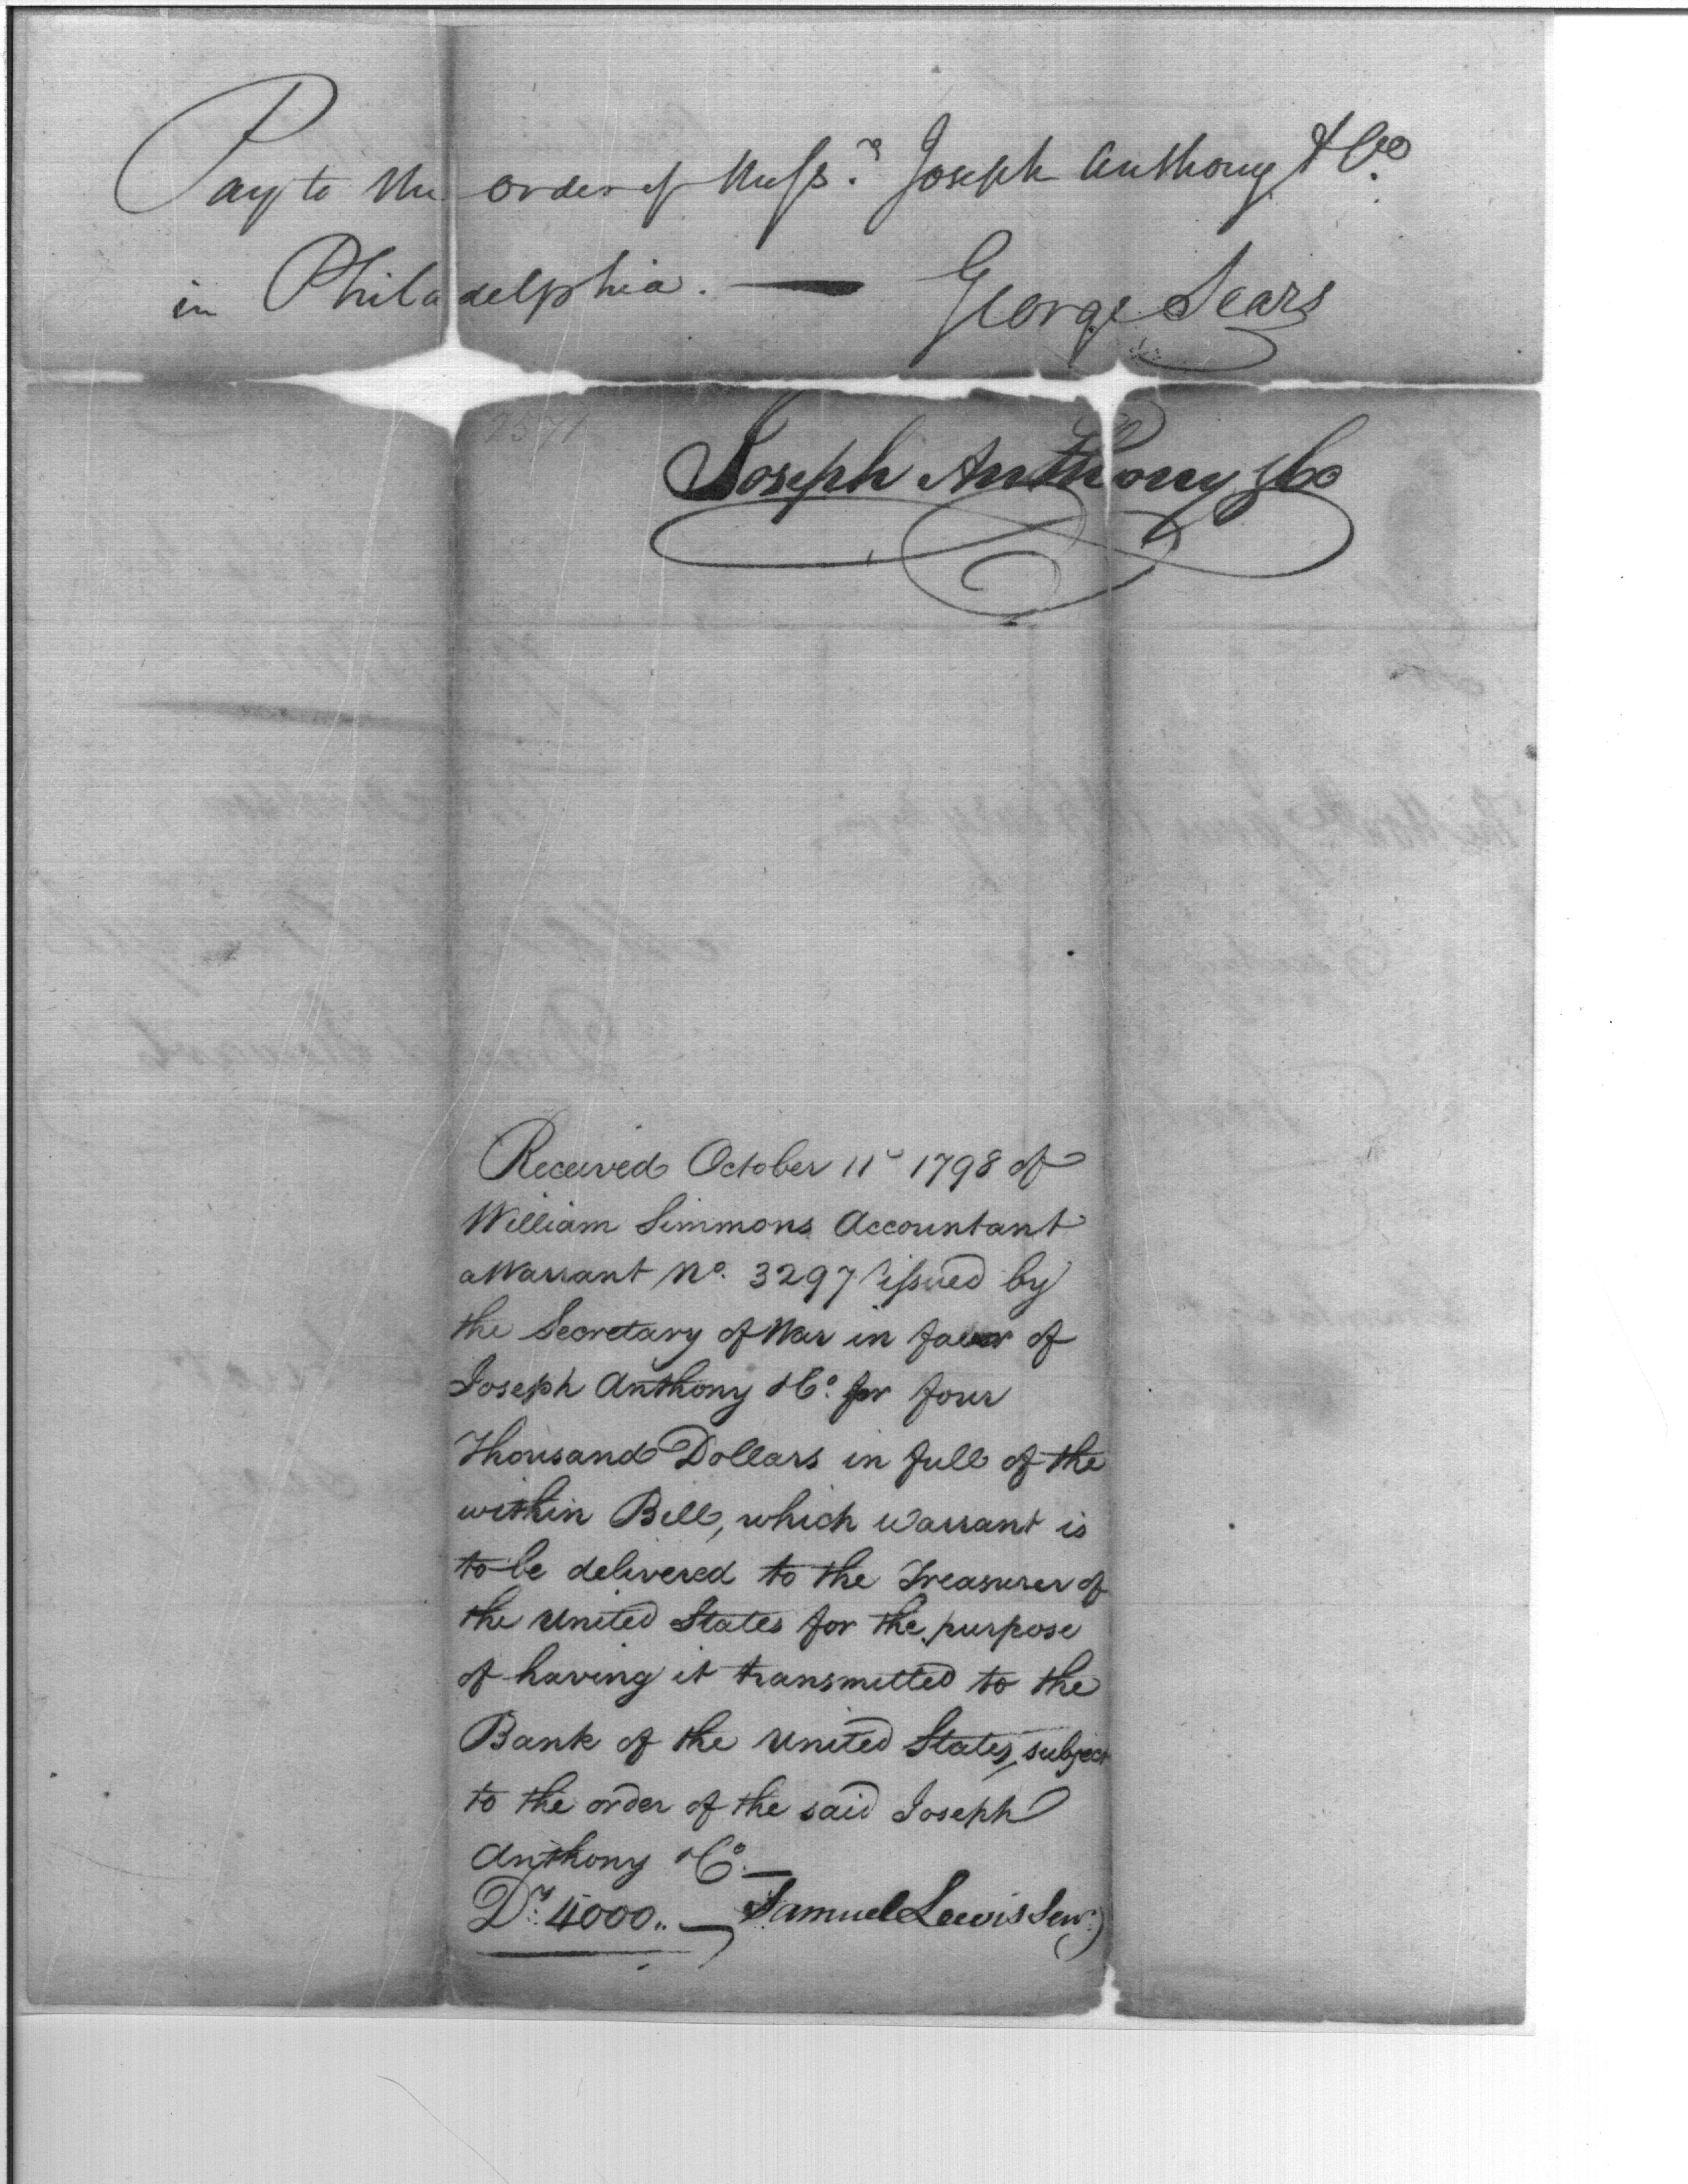 Pay to the order of Messrs. Joseph Anthony & Co.
in Philadelphia. — George Sears
2571
Joseph Anthony & Co
Received October 11 1798 of
William Simmons Accountant
a Warrant No. 3297 issued by
the Secretary of War in favor of
Joseph Anthony & Co. for four
Thousand Dollars in full of the
within Bill, which warrant is
to be delivered to the Treasurer of
the United States for the purpose
of having it transmitted to the
Bank of the United States, subject
to the order of the said Joseph
Anthony & Co. —
Drs. 4000.. — Samuel Lewis Senr.